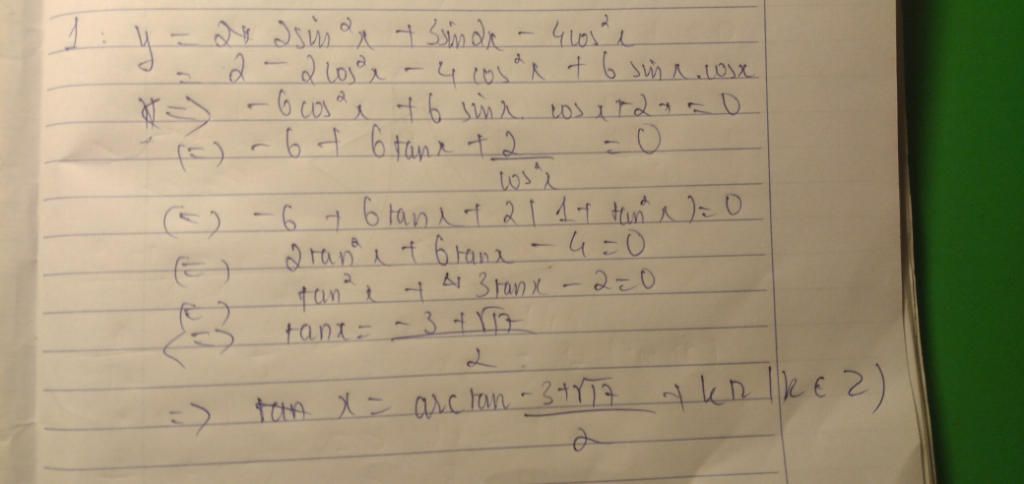 1: y = 2sin²x + 3sin2x - 4cos²x
= 2 - 2cos²x - 4cos²x + 6 sinx.cosx
=> -6cos²x + 6 sinx cosx + 2 = 0
(=) -6 + 6tanx + 2/cos²x = 0
(=) -6 + 6tanx + 2(1 + tan²x) = 0
(=) 2tan²x + 6tanx - 4 = 0
(=) tan²x + 3tanx - 2 = 0
(=) tanx = (-3+√17)/2
=> x = arctan (-3+√17)/2 + kπ (k ∈ Z)